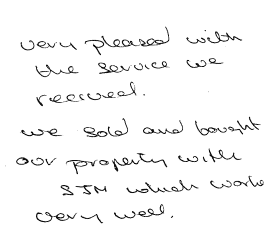 very pleased with
the service we
received.
we sold and bought
our property with
SJM which worke
very well.